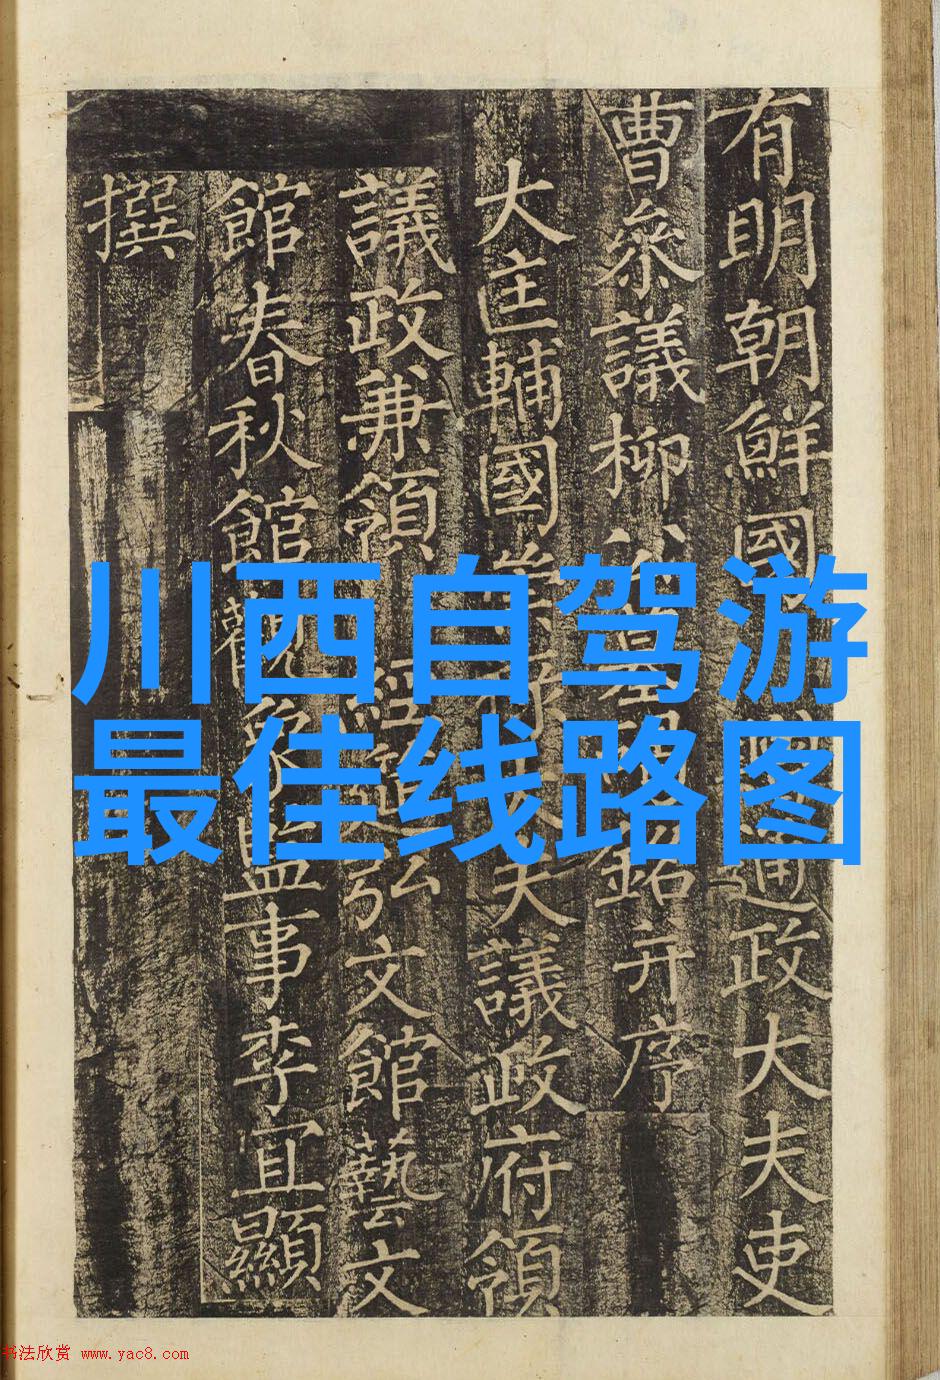 有明朝鮮國通政大夫吏
曹叅議柳公墓碣銘并序
大匡輔國崇祿大夫議政府領
議政兼領 經筵弘文館藝文
館春秋館觀象監事李宜顯
撰
川西自驾游
最佳线路图
书法欣赏 www.yac8.com